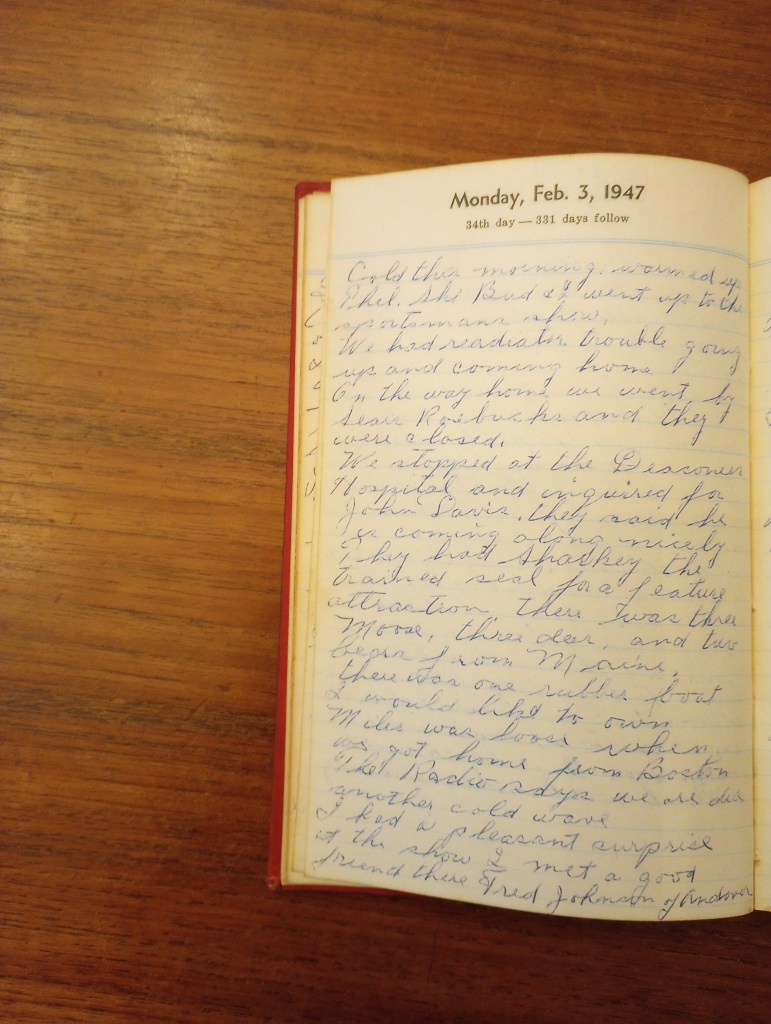 Monday, Feb. 3, 1947
34th day — 331 days follow
Cold this morning. warmed up
Phel. she Bud & I went up to the
sportsmans show.
We had readiator trouble going
up and coming home
On the way home we went by
Sears Roebucks and they
were closed.
We stopped at the Deaconess
Hospital and inquired for
John Davis. they said he
is coming along nicely
They had Sharkey the
trained seal for a feature
attraction. There was three
Moose, three deer, and two
bears from Maine.
there was one rubber boat
I would like to own
Miles was loose when
we got home from Boston
The Radio says we are due
another cold wave
I had a pleasant surprise
at the show I met a good
friend there Fred Johnson of Andover